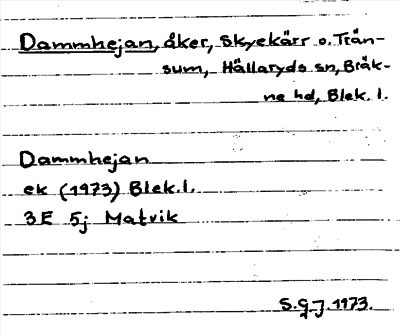 Dammhejan, åker, Skyekärr o. Trån-
sum, Hällaryds sn, Bräk-
ne hd, Blek. l.
Dammhejan
ek (1973) Blek. l.
3E 5j Matvik
S.G.J. 1973.